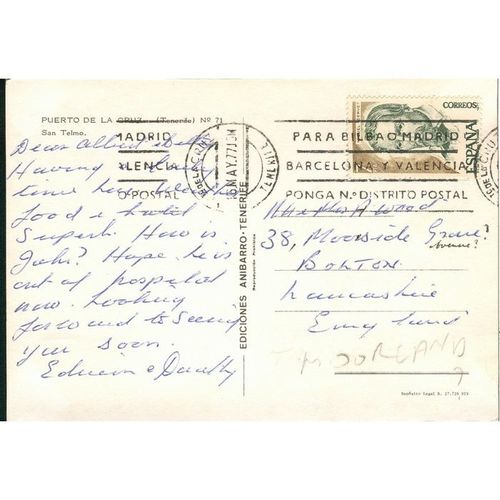 PUERTO DE LA CRUZ (Tenerife) Nº 71
San Telmo.
Dear Albert
Having a
time
food & hotel
Superb. How is
Hope he is
out of hospital
now. Looking
forward to seeing
you soon.
Edwin & Dorothy
EDICIONES ANIBARRO-TENERIFE
CORREOS
ESPAÑA
MADRID
VALENCIA
O POSTAL
MAY 77
PARA BILBAO MADRID
BARCELONA Y VALENCIA
PONGA N.º DISTRITO POSTAL
A Wood
38, Moorside Grove
Avenue?
BOLTON
Lancashire
England
Depósito Legal B.